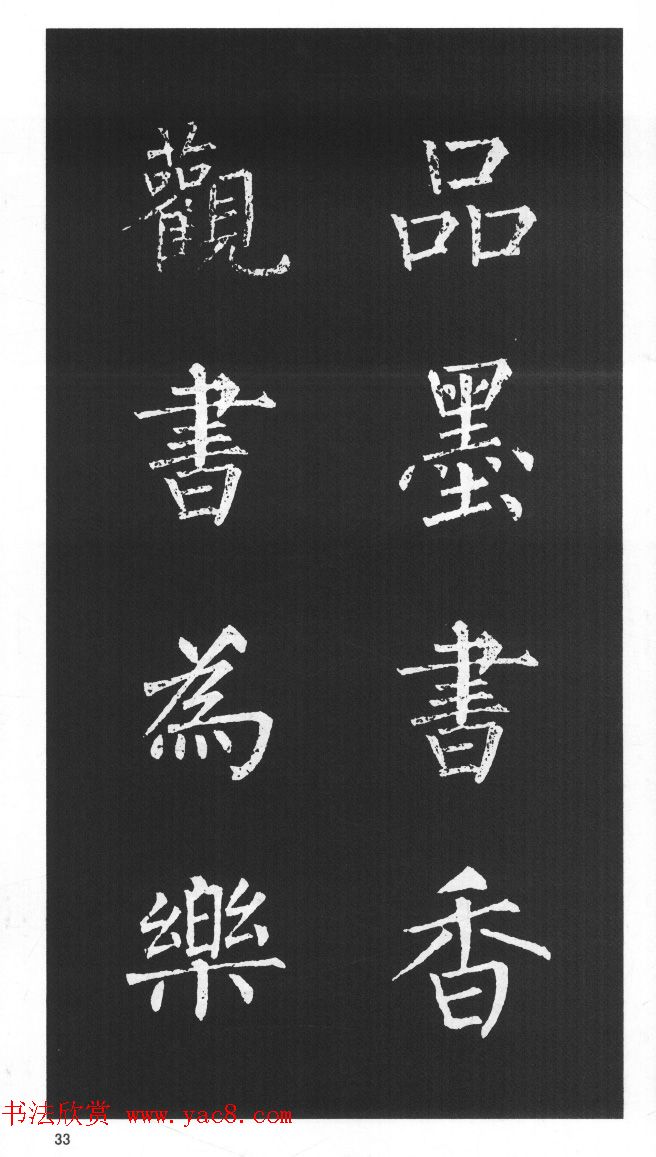 品墨書香
觀書為樂
书法欣赏 www.yac8.com
33